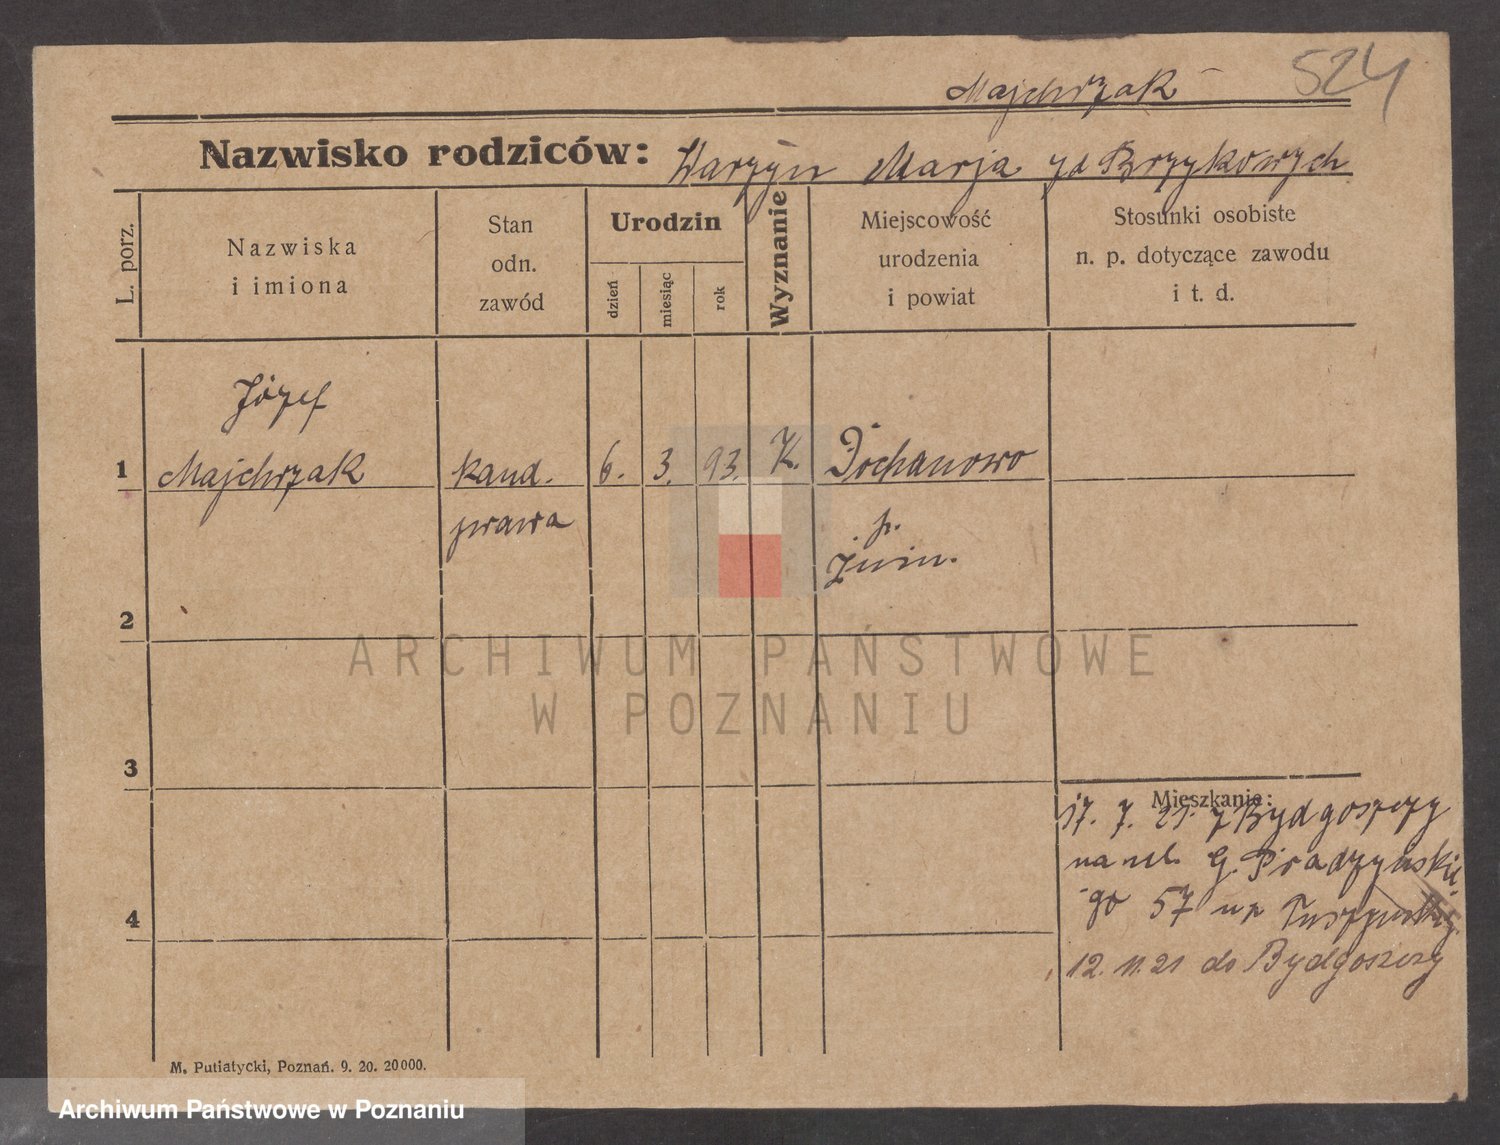 524
Majchrzak
Nazwisko rodziców: Warzyn Marja zd Brzykowszych
L. porz.
Nazwiska
i imiona
Stan
odn.
zawód
Urodzin
dzień
miesiąc
rok
Wyznanie
Miejscowość
urodzenia
i powiat
Stosunki osobiste
n. p. dotyczące zawodu
i t. d.
Józef
1 Majchrzak kand. 6. 3. 93. K. Dochanowo
prawa p.
Żnin.
2
ARCHIWUM PAŃSTWOWE
W POZNANIU
3
Mieszkanie:
17. 7. 21. z Bydgoszczy
na ul. G. Prądzyńskie
go 57 
4
12. 11. 21 do Bydgoszczy
M. Putiatycki, Poznań. 9. 20. 20000.
Archiwum Państwowe w Poznaniu